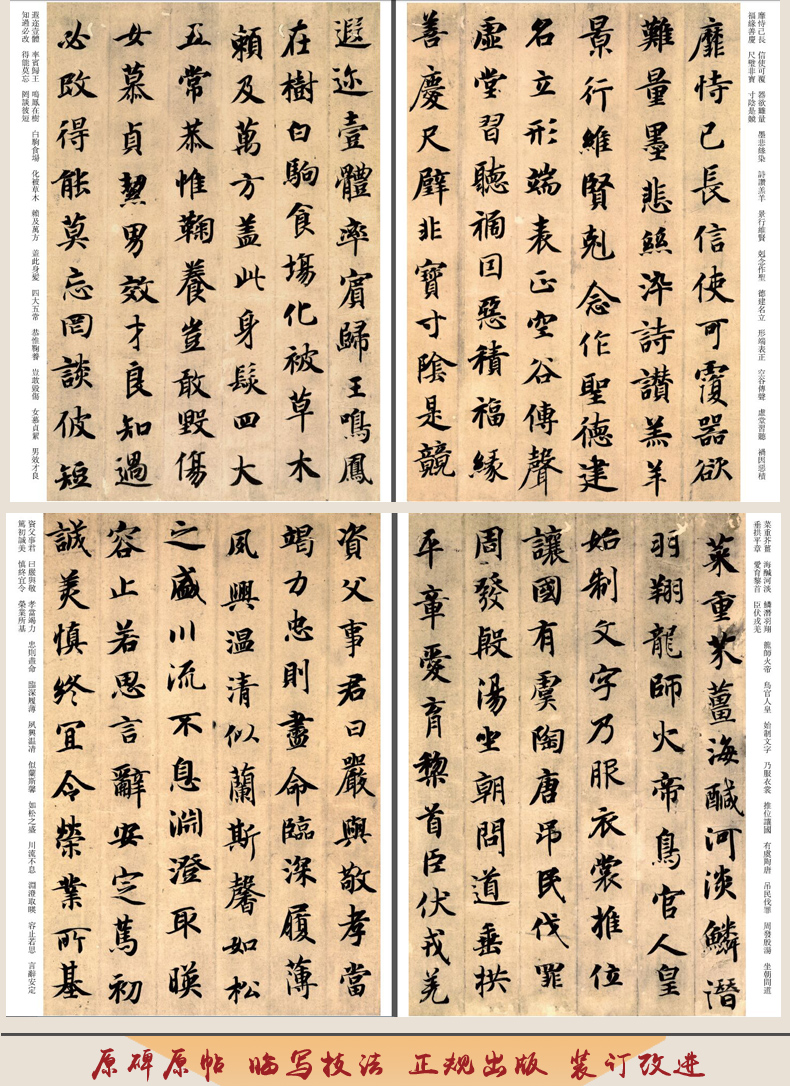 靡恃己長　信使可覆　器欲難量　墨悲絲染　詩讚羔羊　景行維賢　剋念作聖　德建名立　形端表正　空谷傳聲　虛堂習聽　禍因惡積
福緣善慶　尺璧非寶　寸陰是競
靡恃己長信使可覆器欲
難量墨悲絲染詩讚羔羊
景行維賢剋念作聖德建
名立形端表正空谷傳聲
虛堂習聽禍因惡積福緣
善慶尺璧非寶寸陰是競
遐迩壹體率賓歸王鳴鳳
在樹白駒食場化被草木
賴及萬方蓋此身髮四大
五常恭惟鞠養豈敢毀傷
女慕貞絜男效才良知過
必改得能莫忘罔談彼短
遐迩壹體　率賓歸王　鳴鳳在樹　白駒食場　化被草木　賴及萬方　蓋此身髮　四大五常　恭惟鞠養　豈敢毀傷　女慕貞絜　男效才良
知過必改　得能莫忘　罔談彼短
菜重芥薑　海鹹河淡　鱗潛羽翔　龍師火帝　鳥官人皇　始制文字　乃服衣裳　推位讓國　有虞陶唐　吊民伐罪　周發殷湯　坐朝問道
垂拱平章　愛育黎首　臣伏戎羌
菜重芥薑海鹹河淡鱗潛
羽翔龍師火帝鳥官人皇
始制文字乃服衣裳推位
讓國有虞陶唐吊民伐罪
周發殷湯坐朝問道垂拱
平章愛育黎首臣伏戎羌
資父事君曰嚴與敬孝當
竭力忠則盡命臨深履薄
夙興温清似蘭斯馨如松
之盛川流不息淵澄取暎
容止若思言辭安定篤初
誠美慎終宜令榮業所基
資父事君　曰嚴與敬　孝當竭力　忠則盡命　臨深履薄　夙興温清　似蘭斯馨　如松之盛　川流不息　淵澄取暎　容止若思　言辭安定
篤初誠美　慎終宜令　榮業所基
原碑原帖 临写技法 正规出版 装订改进